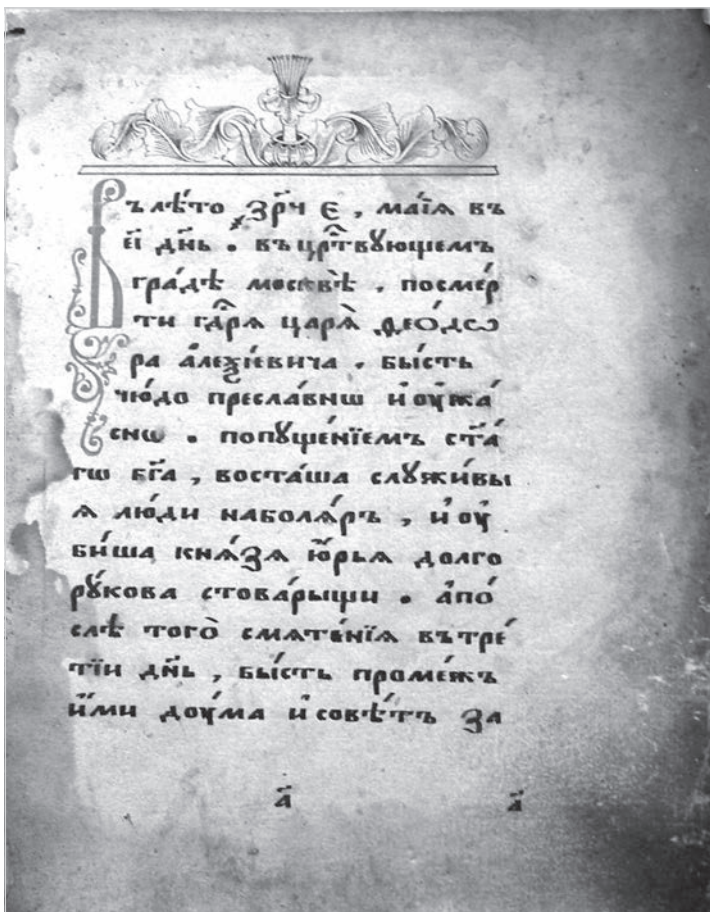 Въ лѣ́то ҂зр҃ч є҃, маі́ꙗ въ
є҃і дн҃ь . въцр҇твꙋющемъ
гра́дѣ москвѣ̀ . посмер́
ти гд҇рѧ царѧ̀ ѳео́дѡ
ра а҆леѯі́евича . бы́сть
чю́до пресла́внѡ и҆оу҆жа́
снѡ . попꙋще́нїемъ ст҃а́
гѡ бг҃а , воста́ша слꙋжи́вы
ѧ лю́ди наболѧ́ръ , и҆ оу҆
би́ша кнѧ́зѧ ю҆́рьѧ долго
рꙋ́кова стова́рыщи . а҆по́
слѣ того̀ смѧте́нїѧ вътре́
тїи дн҃ь , бы́сть проме́жъ
и҆́ми доу́ма и҆ совѣ́тъ за
а҃ а҃